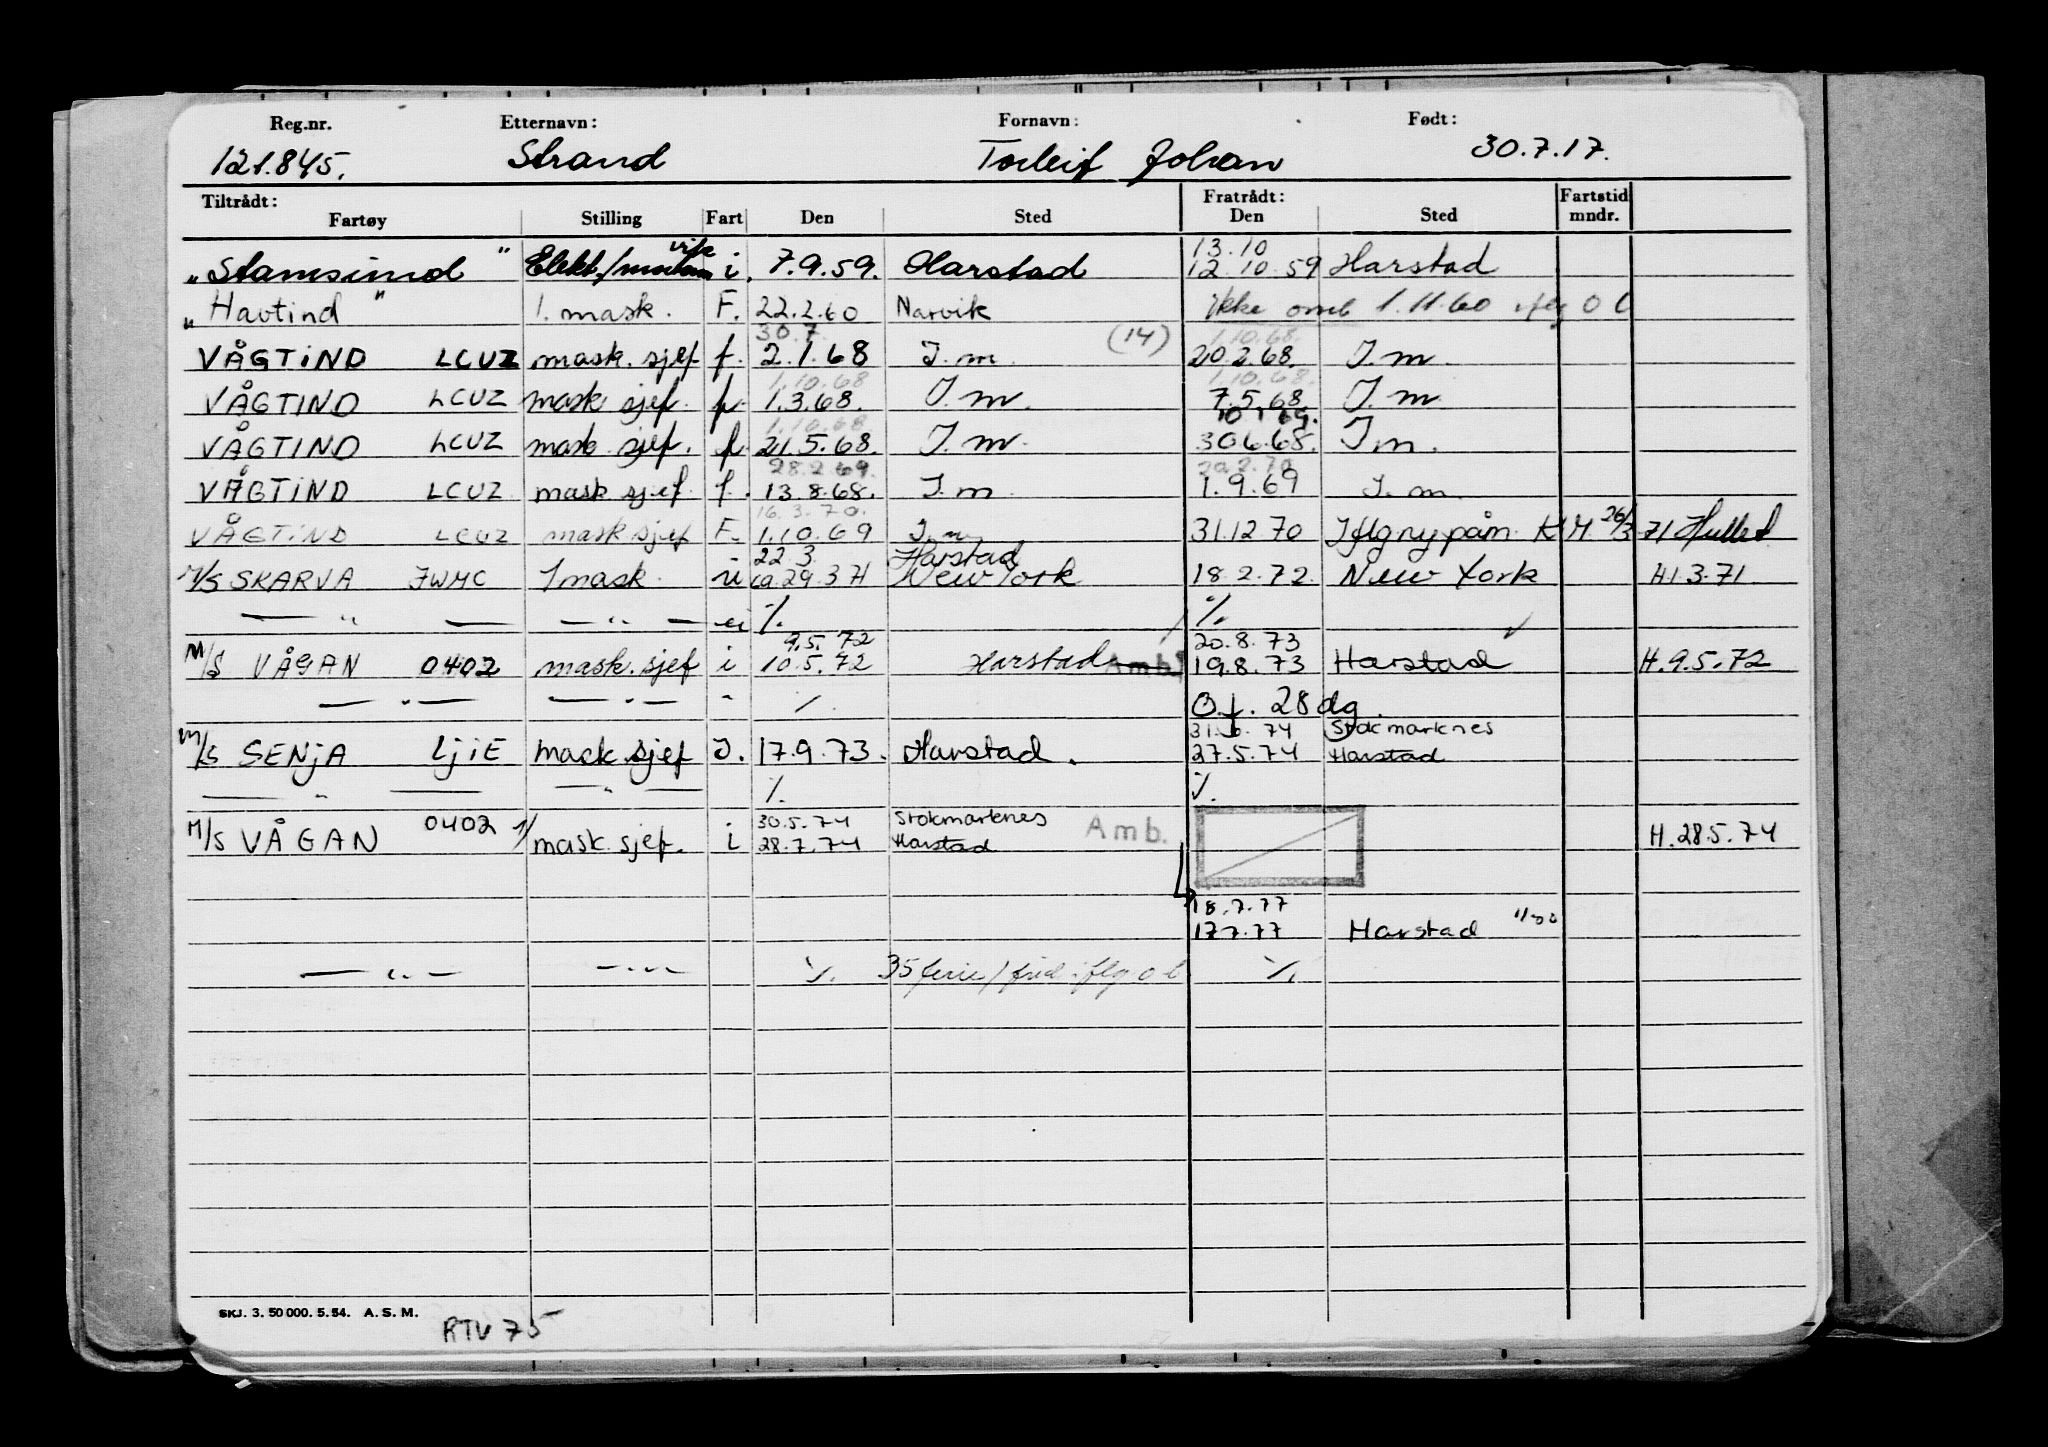 Reg.nr. Etternavn: Fornavn: Født:
121.845. Strand Torleif Johan 30.7.17.
Tiltrådt: Fratrådt: Fartstid
Fartøy Stilling Fart Den Sted Den Sted mndr.
vik 13.10
"Stamsund" Elekt./ i. 7.9.59. Harstad 12.10.59 Harstad
"Havtind" 1. mask. F. 22.2.60 Narvik Ikke omb 1.11.60 iflg O l
30.7 (14) 1.10.68.
VÅGTIND LCUZ mask. sjef f. 2.1.68 I.m. 20.2.68. I.m.
1.10.68 1.10.68.
VÅGTIND LCUZ mask sjef. f. 1.3.68. I.m. 7.5.68 I.m
1.10.68 10.1.69.
VÅGTIND LCUZ mask sjef. f. 21.5.68. I.m. 30.6.68. I.m.
28.2.69. 20.2.70
VÅGTIND LCUZ mask sjef f. 13.8.68. I.m. 1.9.69 I.m.
16.3.70.
VÅGTIND LCUZ mask sjef F. 1.10.69 I.m. 31.12.70 Iflg ny påm. K M 26/3 71 Hullet
22.3 Harstad
M/S SKARVA JWMC 1 mask. u ca.29.3.71 New York 18.2.72. New York H.1.3.71
— " — — " — u ./. ./.
9.5.72 20.8.73
M/S VÅGAN 0402 mask. sjef i 10.5.72 Harstad Amb. 19.8.73 Harstad H.9.5.72
— " — — " — " ./. O.f. 28 dg.
31.5.74 Stokmarknes
M/S SENJA LJIE mask sjef I. 17.9.73. Harstad. 27.5.74 Harstad
— " — — " — ./. ./.
0402 1/ 30.5.74 Stokmarknes Amb.
M/S VÅGAN mask. sjef. i 28.7.74 Harstad H.28.5.74
18.7.77
17.7.77 Harstad
— " — — " — ./. 35 ferie/frid iflg o l ./.
SKJ. 3. 50 000. 5. 54. A. S. M.
RTV 75